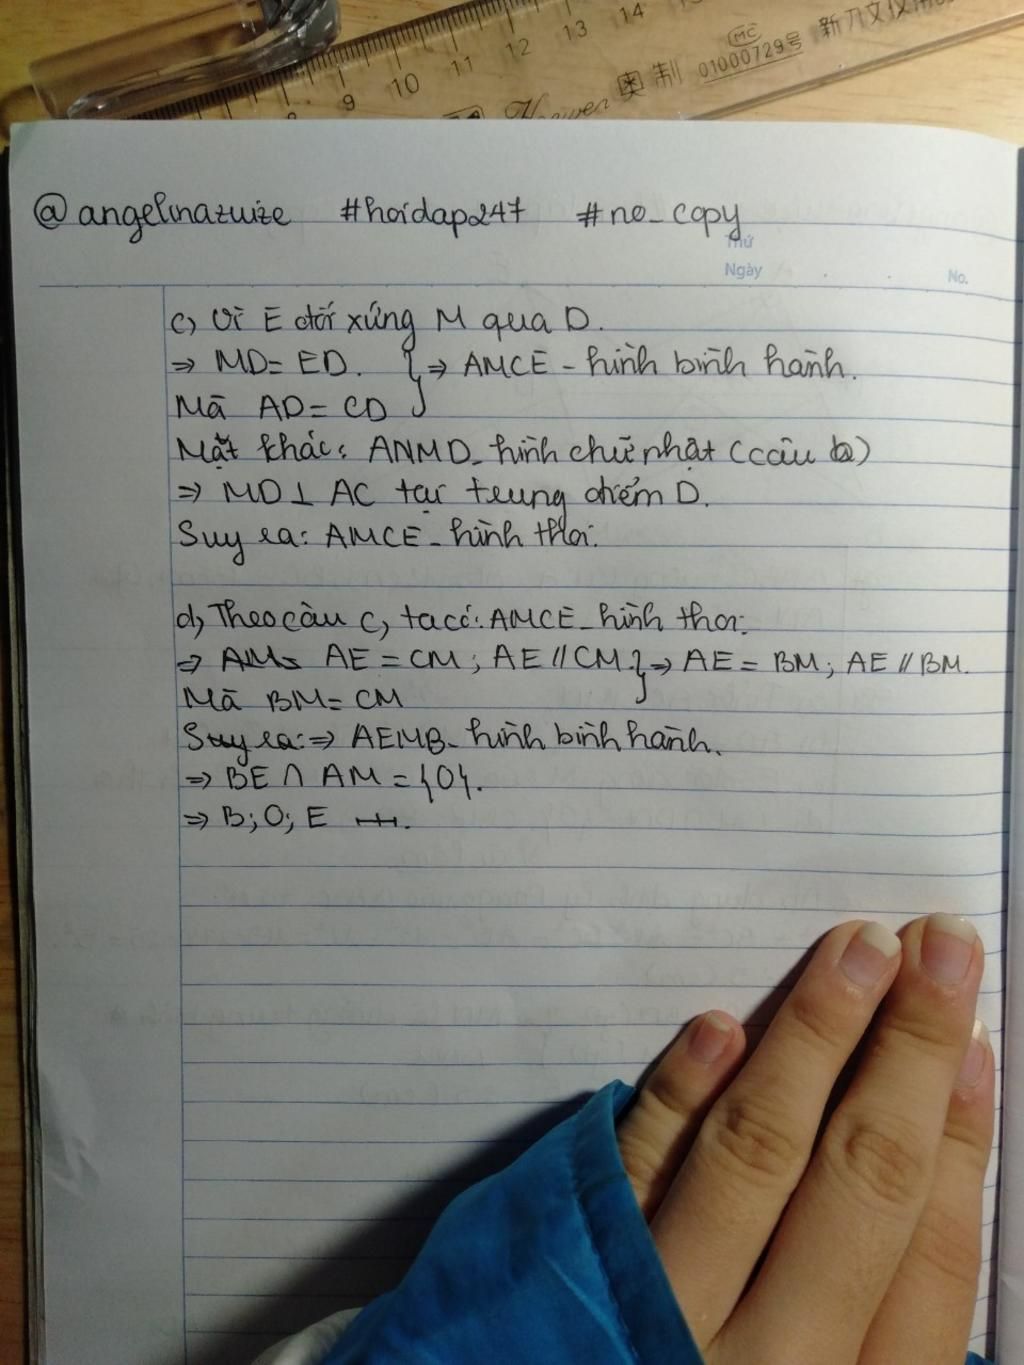 9 10 11 12 13 14
MC
01000729号
奥制
@angelinazuize #hoidap247 #no_copy
Thứ
Ngày . . No.
c, Vì E đối xứng M qua D.
⇒ MD = ED. } ⇒ AMCE - hình bình hành.
Mà AD = CD
Mặt khác: ANMD - hình chữ nhật (câu b)
⇒ MD ⊥ AC tại trung điểm D.
Suy ra: AMCE - hình thoi.
d, Theo câu c, ta có: AMCE - hình thoi.
⇒ AE = CM; AE // CM } ⇒ AE = BM; AE // BM.
Mà BM = CM
⇒ AEMB - hình bình hành.
⇒ BE ∩ AM = {O}.
⇒ B; O; E